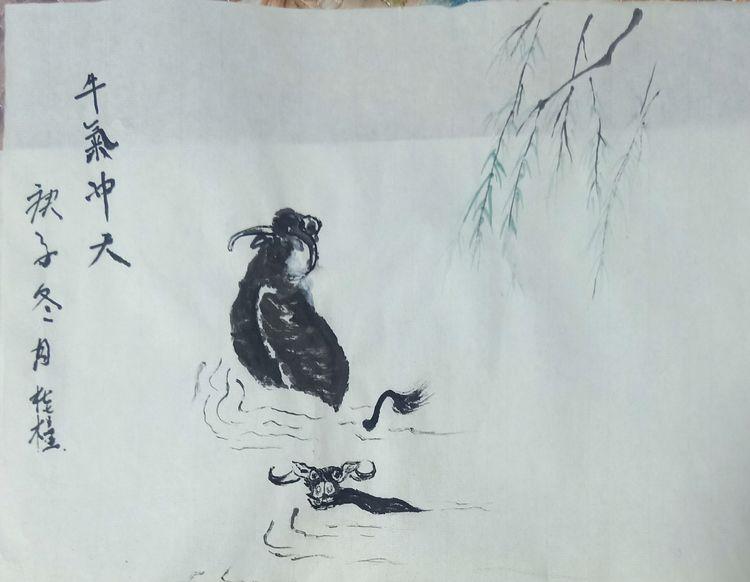 牛氣冲天
庚子冬月桂植